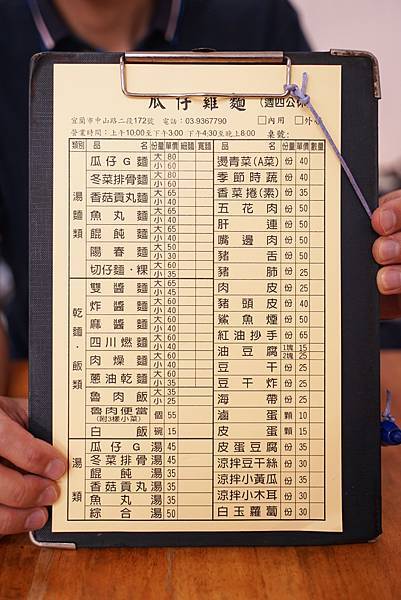 瓜仔雞麵 (週四公休)
宜蘭市中山路二段172號 電話:03.9367790 □內用 □外
營業時間:上午10:00至下午3:00 下午4:30至晚上8:00 桌號:
類別 品名 份量 單價 細麵 寬麵 品名 份量 單價 數量
湯麵類
瓜仔G麵 大 80 小 60
冬菜排骨麵 大 80 小 60
香菇貢丸麵 大 65 小 40
魚丸麵 大 65 小 40
餛飩麵 大 65 小 40
陽春麵 大 50 小 30
切仔麵·粿 大 55 小 35
乾麵·飯類
雙醬麵 大 65 小 45
炸醬麵 大 60 小 40
麻醬麵 大 60 小 40
四川燃麵 大 60 小 40
肉燥麵 大 60 小 40
蔥油乾麵 大 60 小 35
魯肉飯 大 35 小 25
魯肉便當 (附3樣小菜) 個 55
白飯 碗 15
湯類
瓜仔G湯 45
冬菜排骨湯 45
餛飩湯 35
香菇貢丸湯 35
魚丸湯 35
綜合湯 50
燙青菜(A菜) 份 40
季節時蔬 份 40
香菜捲(素) 份 35
五花肉 份 50
肝連 份 50
嘴邊肉 份 50
豬舌 份 50
豬肺 份 25
肉皮 份 25
豬頭皮 份 40
鯊魚煙 份 50
紅油抄手 份 65
油豆腐 1塊 15 2塊 25
豆干 份 25
豆干炸 份 25
海帶 份 25
滷蛋 顆 10
皮蛋 顆 15
皮蛋豆腐 份 35
涼拌豆干絲 份 30
涼拌小黃瓜 份 35
涼拌小木耳 份 30
白玉蘿蔔 份 30